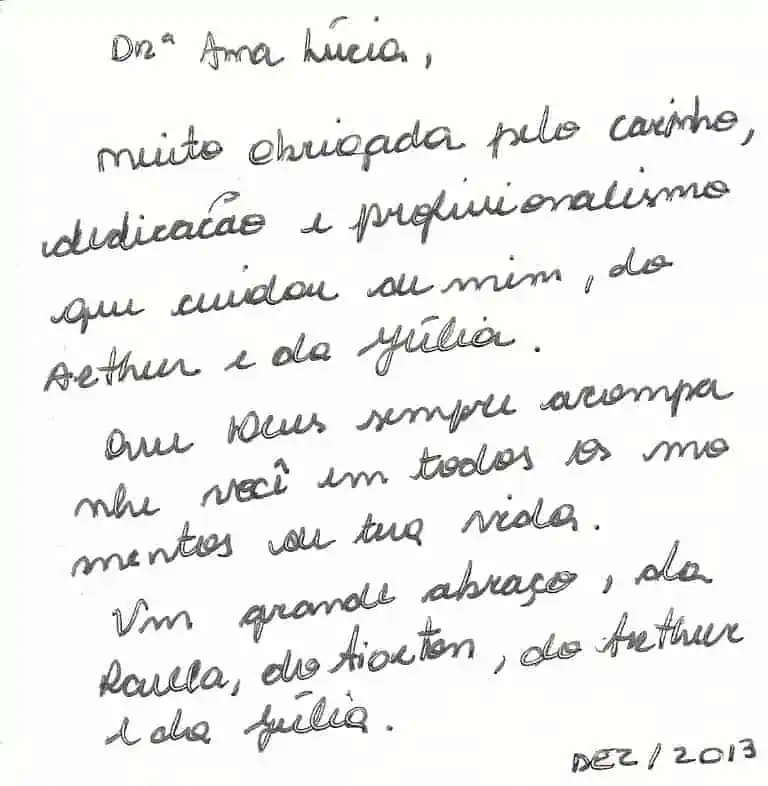 Drª Ana Lúcia,
muito obrigada pelo carinho,
dedicação e profissionalismo
que cuidou de mim, do
Arthur e da Júlia.
Que Deus sempre acompa
nhe você em todos os mo
mentos de tua vida.
Um grande abraço, da
do Airton, do Arthur
e da Júlia.
DEZ/2013